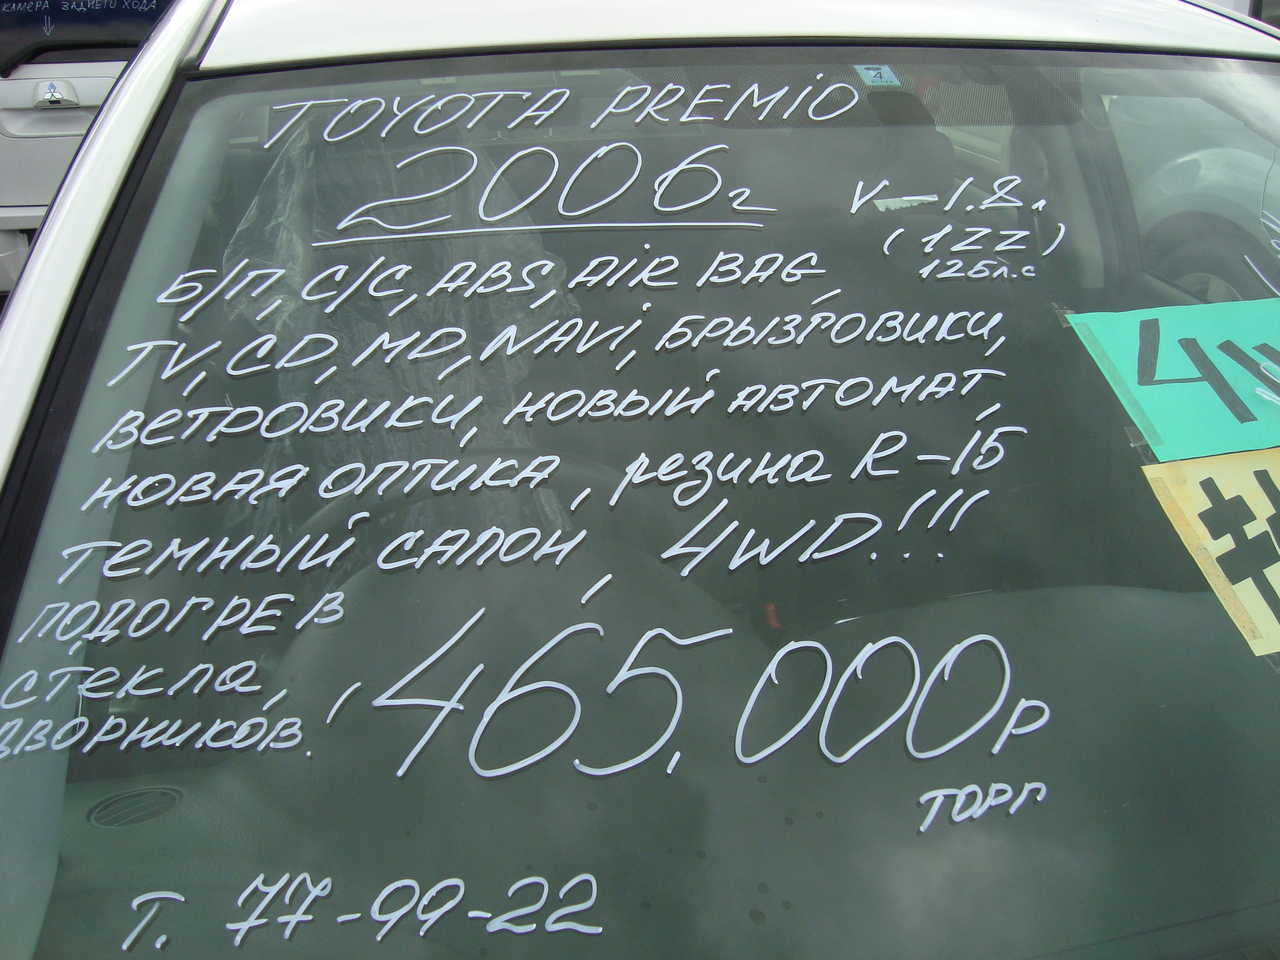 КАМЕРА ЗАДНЕГО ХОДА
4
TOYOTA PREMIO
2006г
V-1.8л
(1ZZ)
125л.с
Б/П, С/С, ABS, AIR BAG,
TV, CD, MD, NAVI, БРЫЗГОВИКИ,
ВЕТРОВИКИ, НОВЫЙ АВТОМАТ,
НОВАЯ ОПТИКА, резина R-15
ТЕМНЫЙ САЛОН, 4WD!!!
ПОДОГРЕВ
стекла,
ДВОРНИКОВ.
465.000р
ТОРГ
Т. 77-99-22